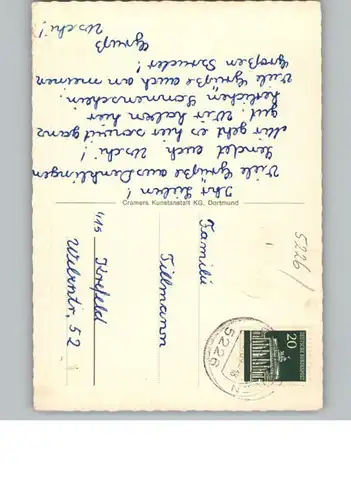 Ihr Lieben!
Viele Grüße aus Denklingen
sendet euch Uschi!
Mir geht es hier soweit ganz
gut. Wir haben hier
herlichen Sonnenschein.
Viele Grüße auch an meinen
großen Bruder!
Gruß
Uschi!
Cramers Kunstanstalt KG, Dortmund
5226/
Familie
Tillmann
415 Krefeld
52
5226
20
DEUTSCHE BUNDESPOST